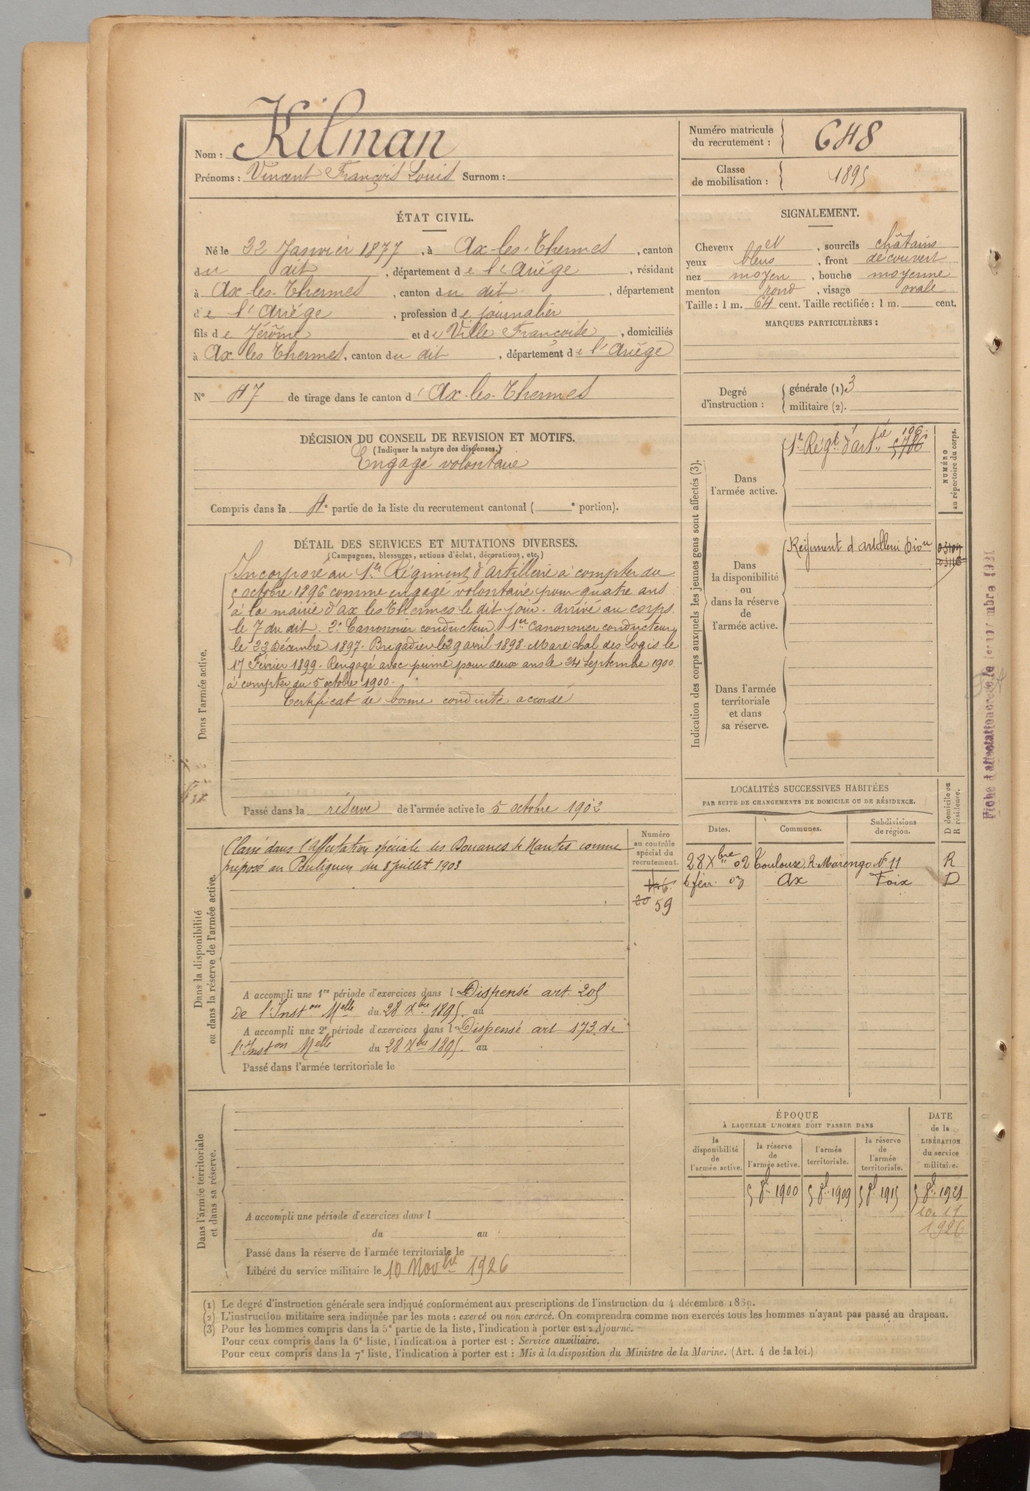 Nom : Kilman
Prénoms : Vincent François Louis Surnom :
Numéro matricule du recrutement : 648
Classe de mobilisation : 1895
ÉTAT CIVIL.
Né le 22 Janvier 1877, à Ax-les-Thermes, canton
du dit, département de l'Ariège, résidant
à Ax-les-Thermes, canton du dit, département
de l'Ariège, profession de journalier
fils de Jérôme et de Ville Françoise, domiciliés
à Ax les Thermes, canton du dit, département de l'Ariège
N° 47 de tirage dans le canton d'Ax-les-Thermes
SIGNALEMENT.
Cheveux et, sourcils châtains
yeux bleus, front découvert
nez moyen, bouche moyenne
menton rond, visage ovale
Taille : 1 m. 64 cent. Taille rectifiée : 1 m. cent.
MARQUES PARTICULIÈRES :
Degré d'instruction : générale (1). 3
militaire (2).
DÉCISION DU CONSEIL DE REVISION ET MOTIFS.
(Indiquer la nature des dispenses.)
Engagé volontaire
Compris dans la 4e partie de la liste du recrutement cantonal ( e portion).
DÉTAIL DES SERVICES ET MUTATIONS DIVERSES.
(Campagnes, blessures, actions d'éclat, décorations, etc.)
Dans l'armée active.
Incorporé au 1er Régiment d'artillerie à compter du
5 octobre 1896 comme engagé volontaire pour quatre ans
à la mairie d'Ax les Thermes le dit jour. arrivé au corps
le 7 du dit. 2e Canonnier conducteur. 1er Canonnier conducteur
le 23 décembre 1897. Brigadier le 29 avril 1898. Maréchal des Logis le
17 Février 1899. Rengagé avec prime pour deux ans le 24 Septembre 1900
à compter du 5 octobre 1900.
Certificat de bonne conduite accordé
Passé dans la réserve de l'armée active le 5 octobre 1902
Indication des corps auxquels les jeunes gens sont affectés (3).
NUMÉRO au répertoire du corps.
Dans l'armée active.
1er Régt d'artie 196
Dans la disponibilité ou dans la réserve de l'armée active.
Régiment d'artillerie
Dans l'armée territoriale et dans sa réserve.
LOCALITÉS SUCCESSIVES HABITÉES
PAR SUITE DE CHANGEMENTS DE DOMICILE OU DE RÉSIDENCE.
Dates. Communes. Subdivisions de région. D domicile ou R résidence.
28 Xbre 02 Toulouse R. Marengo No 11 R
6 févr. 03 Ax Foix D
Dans la disponibilité ou dans la réserve de l'armée active.
Numéro au contrôle spécial du recrutement.
Classé dans l'affectation spéciale les Douanes de Nantes comme
préposé au Puliguen du 8 juillet 1903
59
A accompli une 1re période d'exercices dans l Dispensé art. 205
de l'Inston Melle du 28 Xbre 1895. au
A accompli une 2e période d'exercices dans l Dispensé art 173 de
l'Inston Melle du 28 Xbre 1895. au
Passé dans l'armée territoriale le
Dans l'armée territoriale et dans sa réserve.
A accompli une période d'exercices dans l
du au
Passé dans la réserve de l'armée territoriale le
Libéré du service militaire le 10 Novbre 1926
ÉPOQUE
À LAQUELLE L'HOMME DOIT PASSER DANS
la disponibilité de l'armée active. la réserve de l'armée active. l'armée territoriale. la réserve de l'armée territoriale. DATE de la LIBÉRATION du service militaire.
5 8bre 1900 5 8bre 1909 5 8bre 1915 5 8bre 1921
10. 11
1926
(1) Le degré d'instruction générale sera indiqué conformément aux prescriptions de l'instruction du 4 décembre 1889.
(2) L'instruction militaire sera indiquée par les mots : exercé ou non exercé. On comprendra comme non exercés tous les hommes n'ayant pas passé au drapeau.
(3) Pour les hommes compris dans la 5e partie de la liste, l'indication à porter est : Ajourné.
Pour ceux compris dans la 6e liste, l'indication à porter est : Service auxiliaire.
Pour ceux compris dans la 7e liste, l'indication à porter est : Mis à la disposition du Ministre de la Marine. (Art. 4 de la loi.)